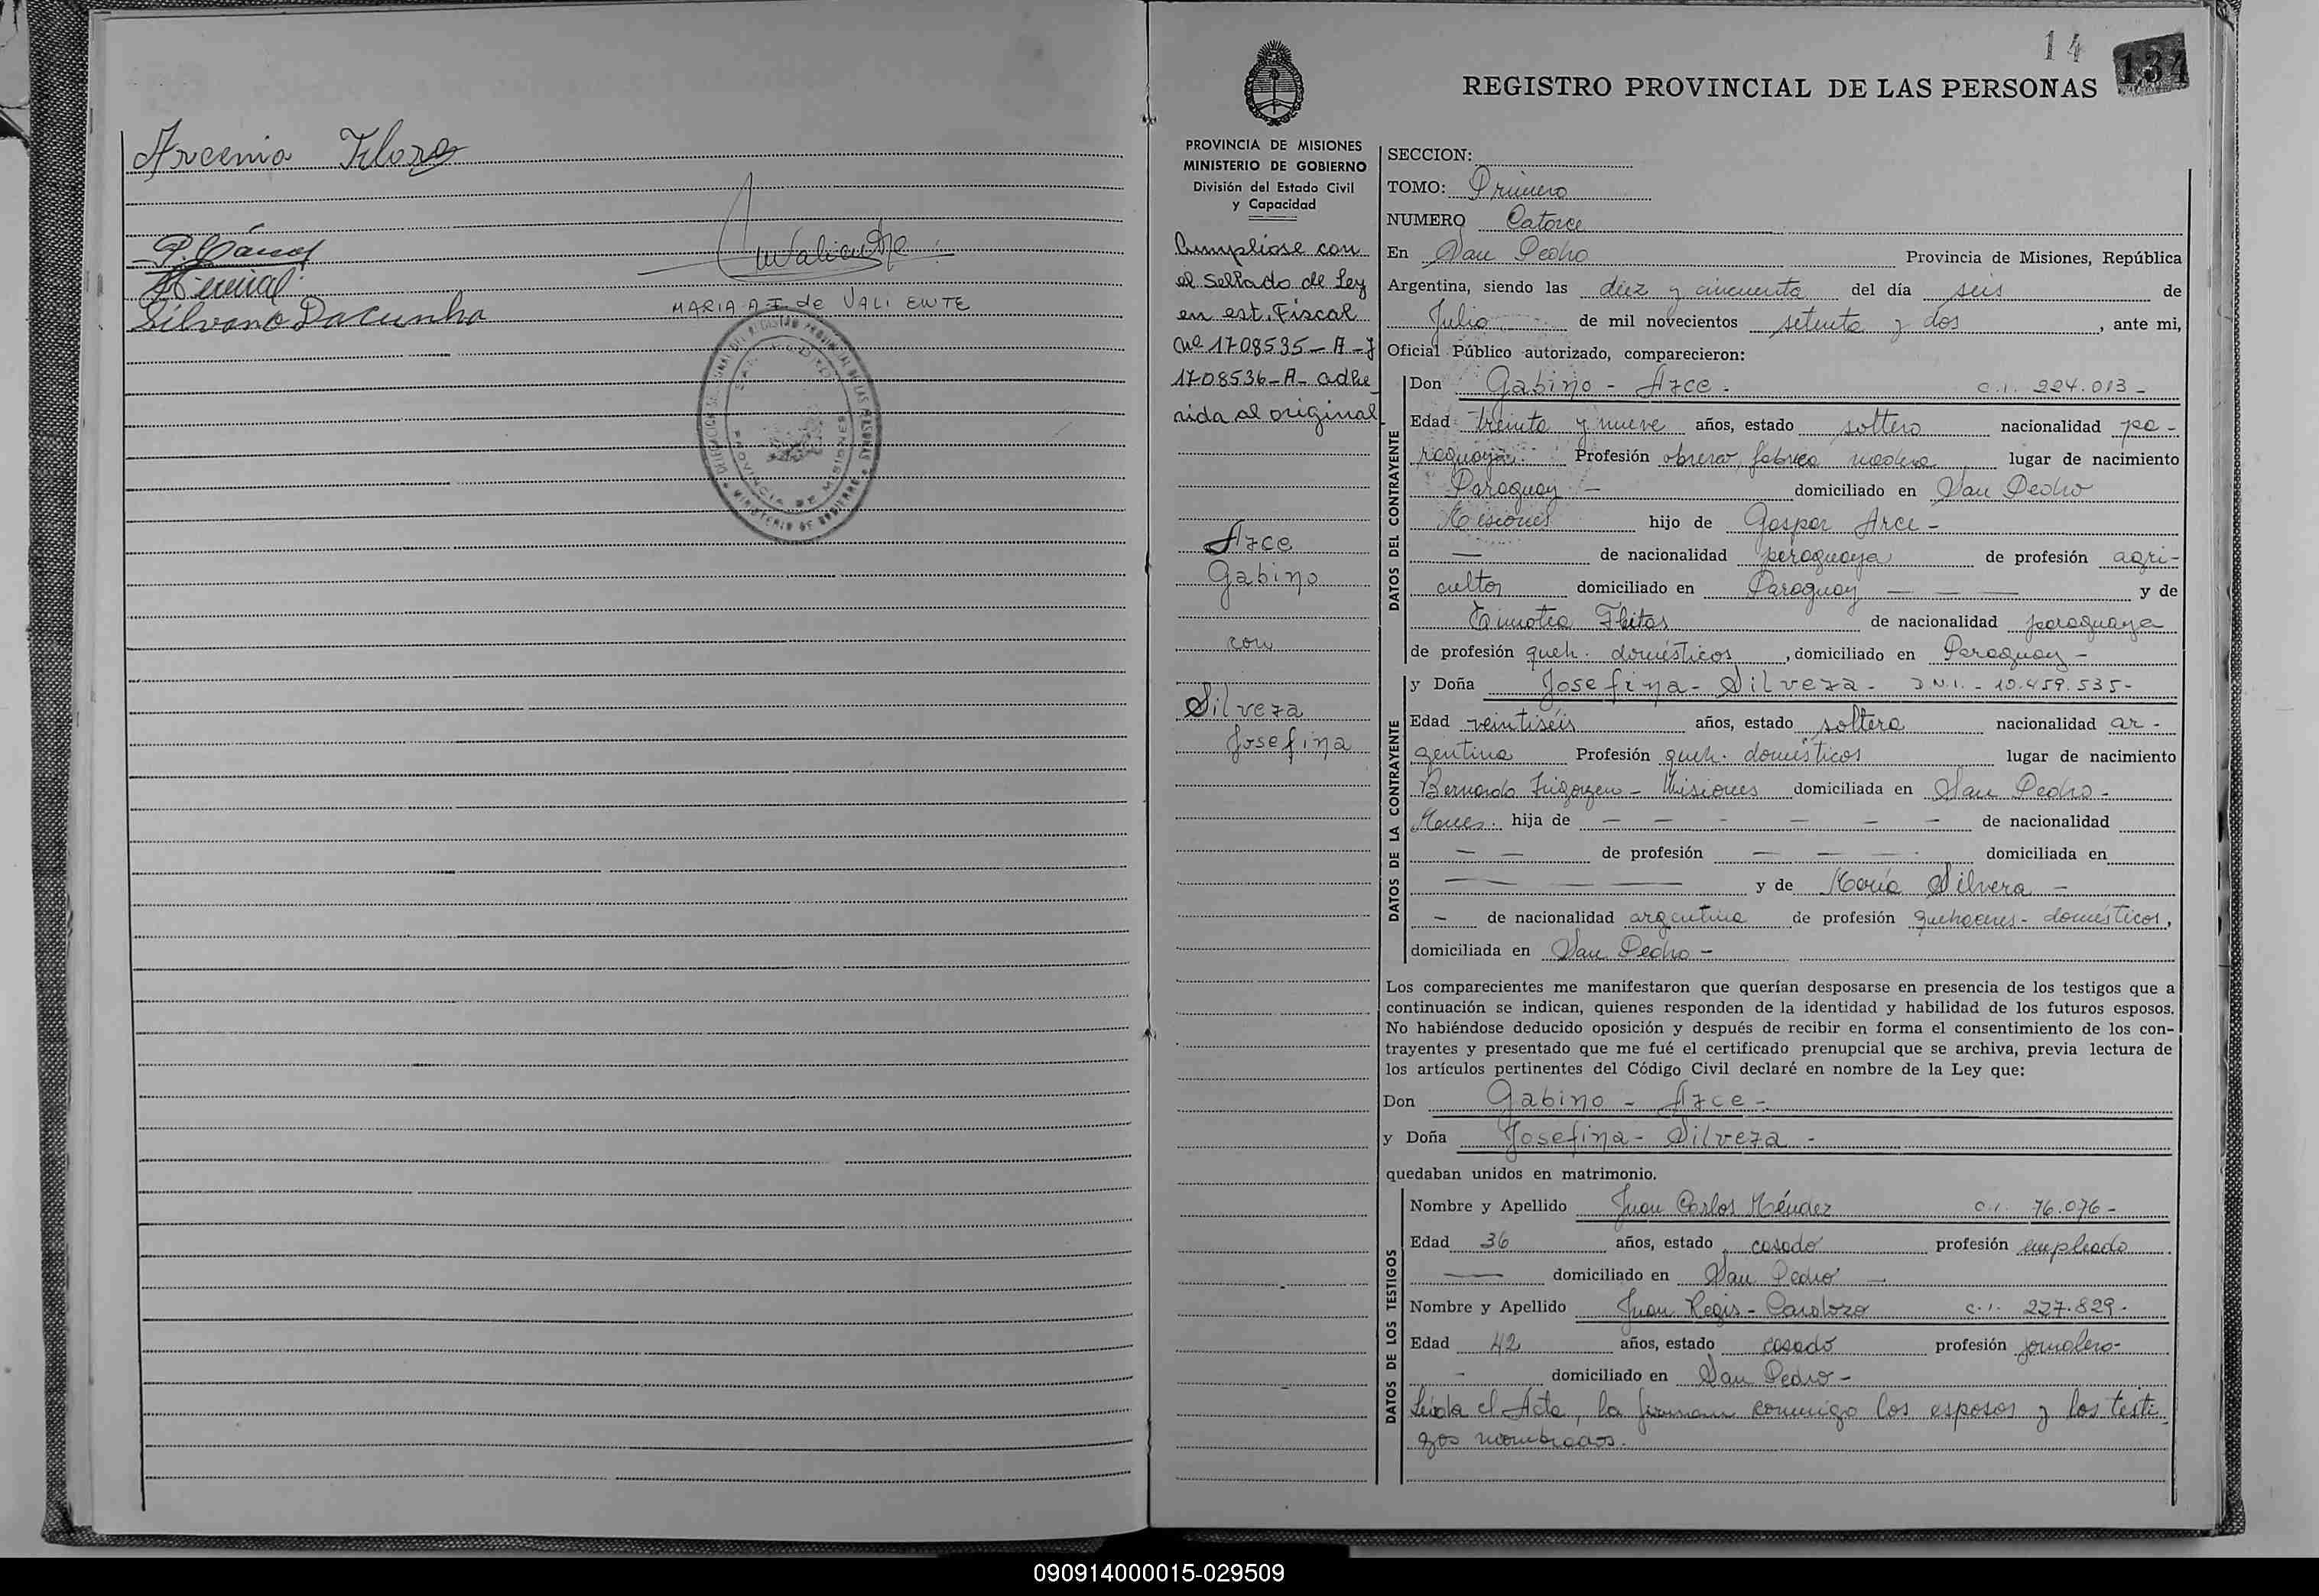 Arcenia Flores
Silvano Dacunha
MARIA A F de VALIENTE
MINISTERIO DE GOBIERNO
PROVINCIA DE MISIONES
14
134
REGISTRO PROVINCIAL DE LAS PERSONAS
PROVINCIA DE MISIONES
MINISTERIO DE GOBIERNO
División del Estado Civil
y Capacidad
Cumpliose con
el Sellado de Ley
en est. Fiscal
Nº 1708535-A-y
1708536-A- adhe
rida al original
Arce
Gabino
con
Silvera
Josefina
SECCION:
TOMO: Primero
NUMERO Catorce
En San Pedro Provincia de Misiones, República
Argentina, siendo las diez y cincuenta del día seis de
Julio de mil novecientos setenta y dos, ante mi,
Oficial Público autorizado, comparecieron:
DATOS DEL CONTRAYENTE
Don Gabino - Arce - C.I. 224.013 -
Edad treinta y nueve años, estado soltero nacionalidad pa-
raguaya Profesión obrero, fabrica madera lugar de nacimiento
Paraguay - domiciliado en San Pedro
Misiones hijo de Gaspar Arce -
— de nacionalidad paraguaya de profesión agri-
cultor domiciliado en Paraguay — — — y de
Timotea Fleitas de nacionalidad paraguaya
de profesión queh. domésticos, domiciliado en Paraguay -
DATOS DE LA CONTRAYENTE
y Doña Josefina - Silvera - D.N.I. - 10.459.535-
Edad veintiséis años, estado soltera nacionalidad ar-
gentina Profesión queh. domésticos lugar de nacimiento
Bernardo Irigoyen - Misiones domiciliada en San Pedro -
Mnes. hija de — — — — — — de nacionalidad
— — de profesión — — — domiciliada en
— — — y de María Silvera -
- de nacionalidad argentina de profesión quehaceres - domésticos,
domiciliada en San Pedro -
Los comparecientes me manifestaron que querían desposarse en presencia de los testigos que a
continuación se indican, quienes responden de la identidad y habilidad de los futuros esposos.
No habiéndose deducido oposición y después de recibir en forma el consentimiento de los con-
trayentes y presentado que me fué el certificado prenupcial que se archiva, previa lectura de
los artículos pertinentes del Código Civil declaré en nombre de la Ley que:
Don Gabino - Arce -
y Doña Josefina - Silvera -
quedaban unidos en matrimonio.
DATOS DE LOS TESTIGOS
Nombre y Apellido Juan Carlos Méndez C.I. 76.076 -
Edad 36 años, estado casado profesión empleado
— domiciliado en San Pedro —
Nombre y Apellido Juan Regis - Cardozo C.I. 227.829 -
Edad 42 años, estado casado profesión jornalero -
- domiciliado en San Pedro -
Leída el Acta, la firman conmigo los esposos y los testi
gos nombrados.
090914000015-029509